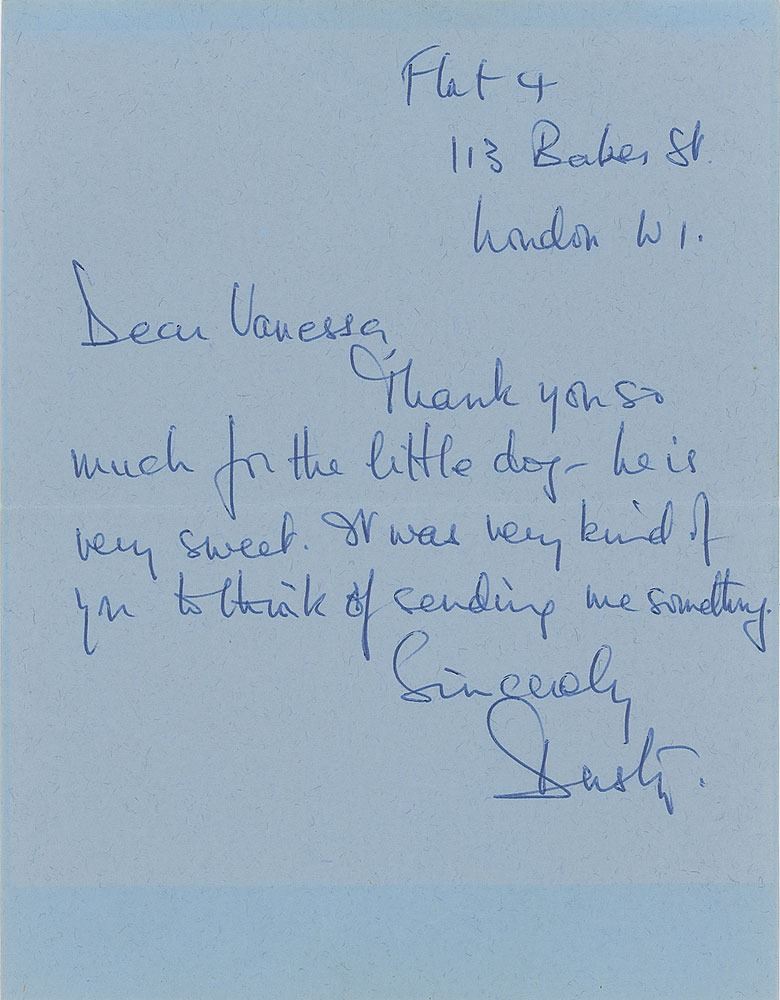 Flat 4
113 Baker St.
London W1.
Dear Vanessa,
Thank you so
much for the little dog - he is
very sweet. It was very kind of
you to think of sending me something.
Sincerely
Dusty.